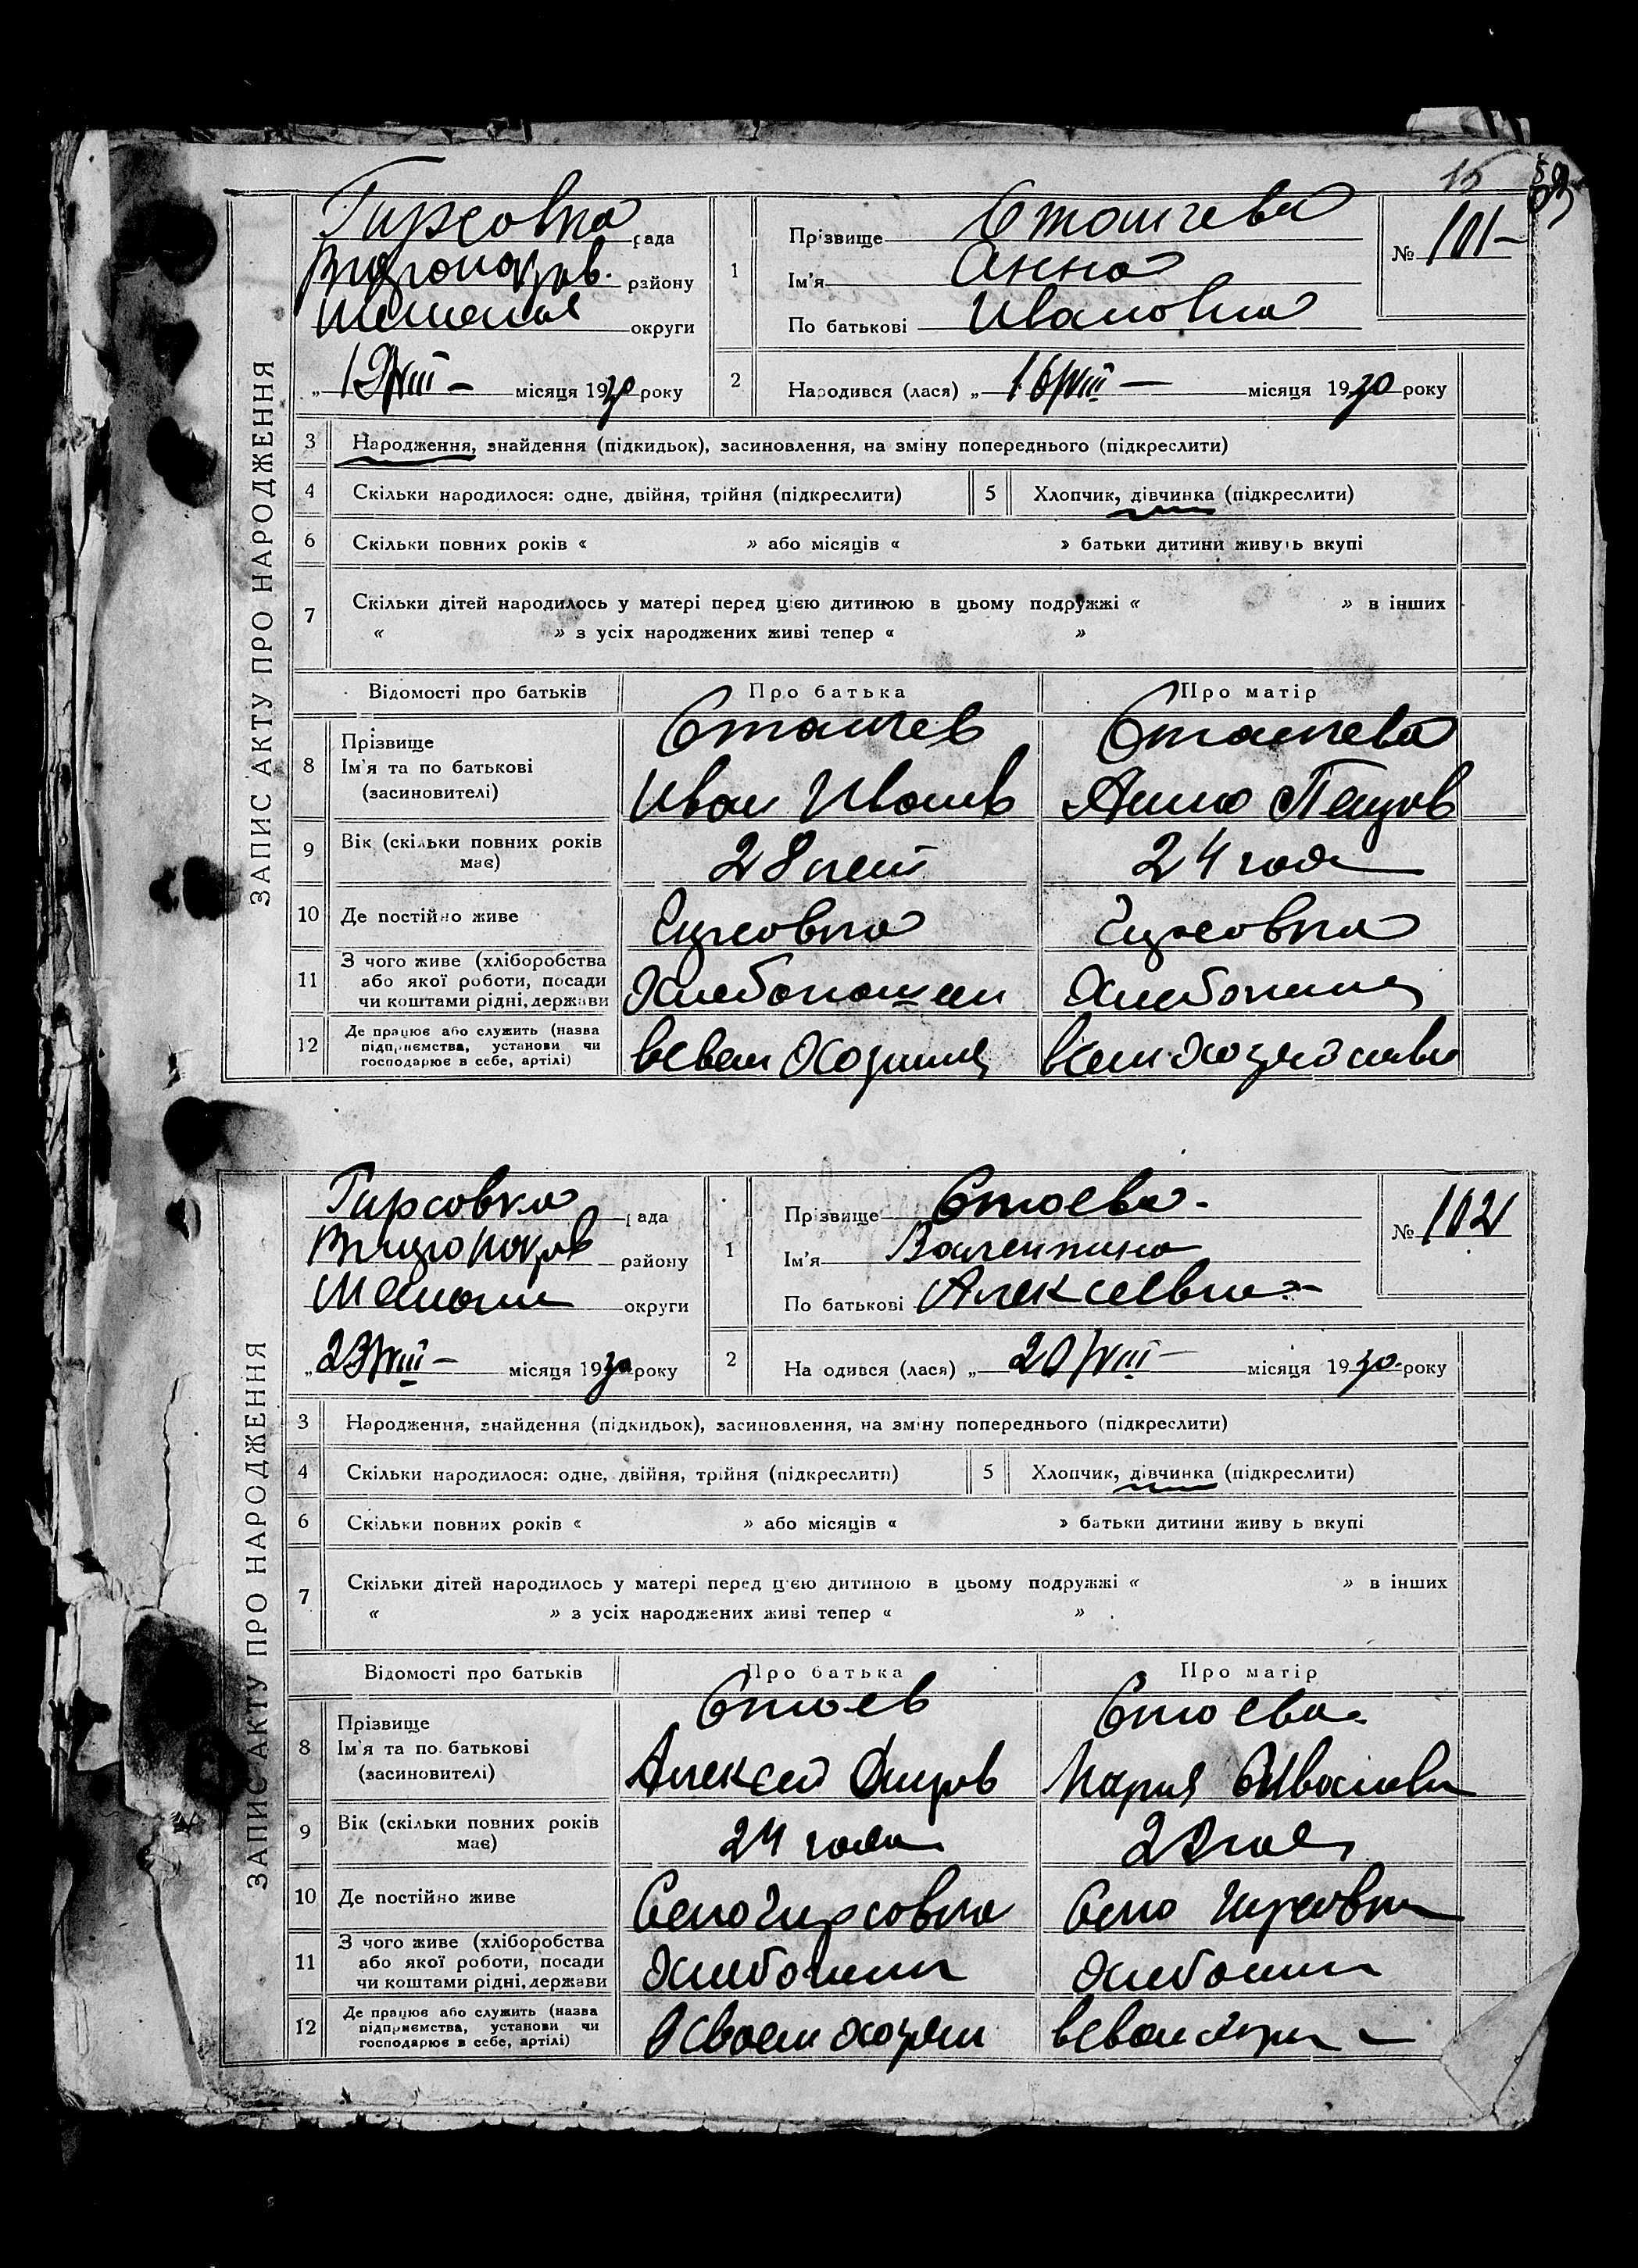 15
ЗАПИС АКТУ ПРО НАРОДЖЕННЯ
Гирсовка рада
району
округи
„ 19/VIII — місяця 1930 року
1
Прізвище Сташева
Ім'я Анна
По батькові Ивановна
№ 101-
2
Народився (лася) „ 16/VIII — місяця 1930 року
3 Народження, знайдення (підкидьок), засиновлення, на зміну попереднього (підкреслити)
4 Скільки народилося: одне, двійня, трійня (підкреслити) 5 Хлопчик, дівчинка (підкреслити)
6 Скільки повних років « » або місяців « » батьки дитини живуть вкупі
7 Скільки дітей народилось у матері перед цією дитиною в цьому подружжі « » в інших
« » з усіх народжених живі тепер « »
Відомості про батьків Про батька Про матір
8 Прізвище
Ім'я та по батькові
(засиновителі)
Сташев
Иван Иванов
Сташева
Анна Петров
9 Вік (скільки повних років
має)
28 лет 24 года
10 Де постійно живе Гирсовка Гирсовка
11 З чого живе (хліборобства
або якої роботи, посади
чи коштами рідні, держави
12 Де працює або служить (назва
підприємства, установи чи
господарює в себе, артілі)
ЗАПИС АКТУ ПРО НАРОДЖЕННЯ
Гирсовка рада
району
округи
„ 23/VIII — місяця 1930 року
1
Прізвище Стоева.
Ім'я Валентина
По батькові Алексеевна
№ 102
2
На одився (лася) „ 20/VIII — місяця 1930 року
3 Народження, знайдення (підкидьок), засиновлення, на зміну попереднього (підкреслити)
4 Скільки народилося: одне, двійня, трійня (підкреслити) 5 Хлопчик, дівчинка (підкреслити)
6 Скільки повних років « » або місяців « » батьки дитини живу ь вкупі
7 Скільки дітей народилось у матері перед цією дитиною в цьому подружжі « » в інших
« » з усіх народжених живі тепер « »
Відомості про батьків Про батька Про матір
8 Прізвище
Ім'я та по батькові
(засиновителі)
Стоев
Алексей
Стоева
Мария Иванова
9 Вік (скільки повних років
має)
24 года
10 Де постійно живе Село Гирсовка Село Гирсовка
11 З чого живе (хліборобства
або якої роботи, посади
чи коштами рідні, держави
12 Де працює або служить (назва
підприємства, установи чи
господарює в себе, артілі)